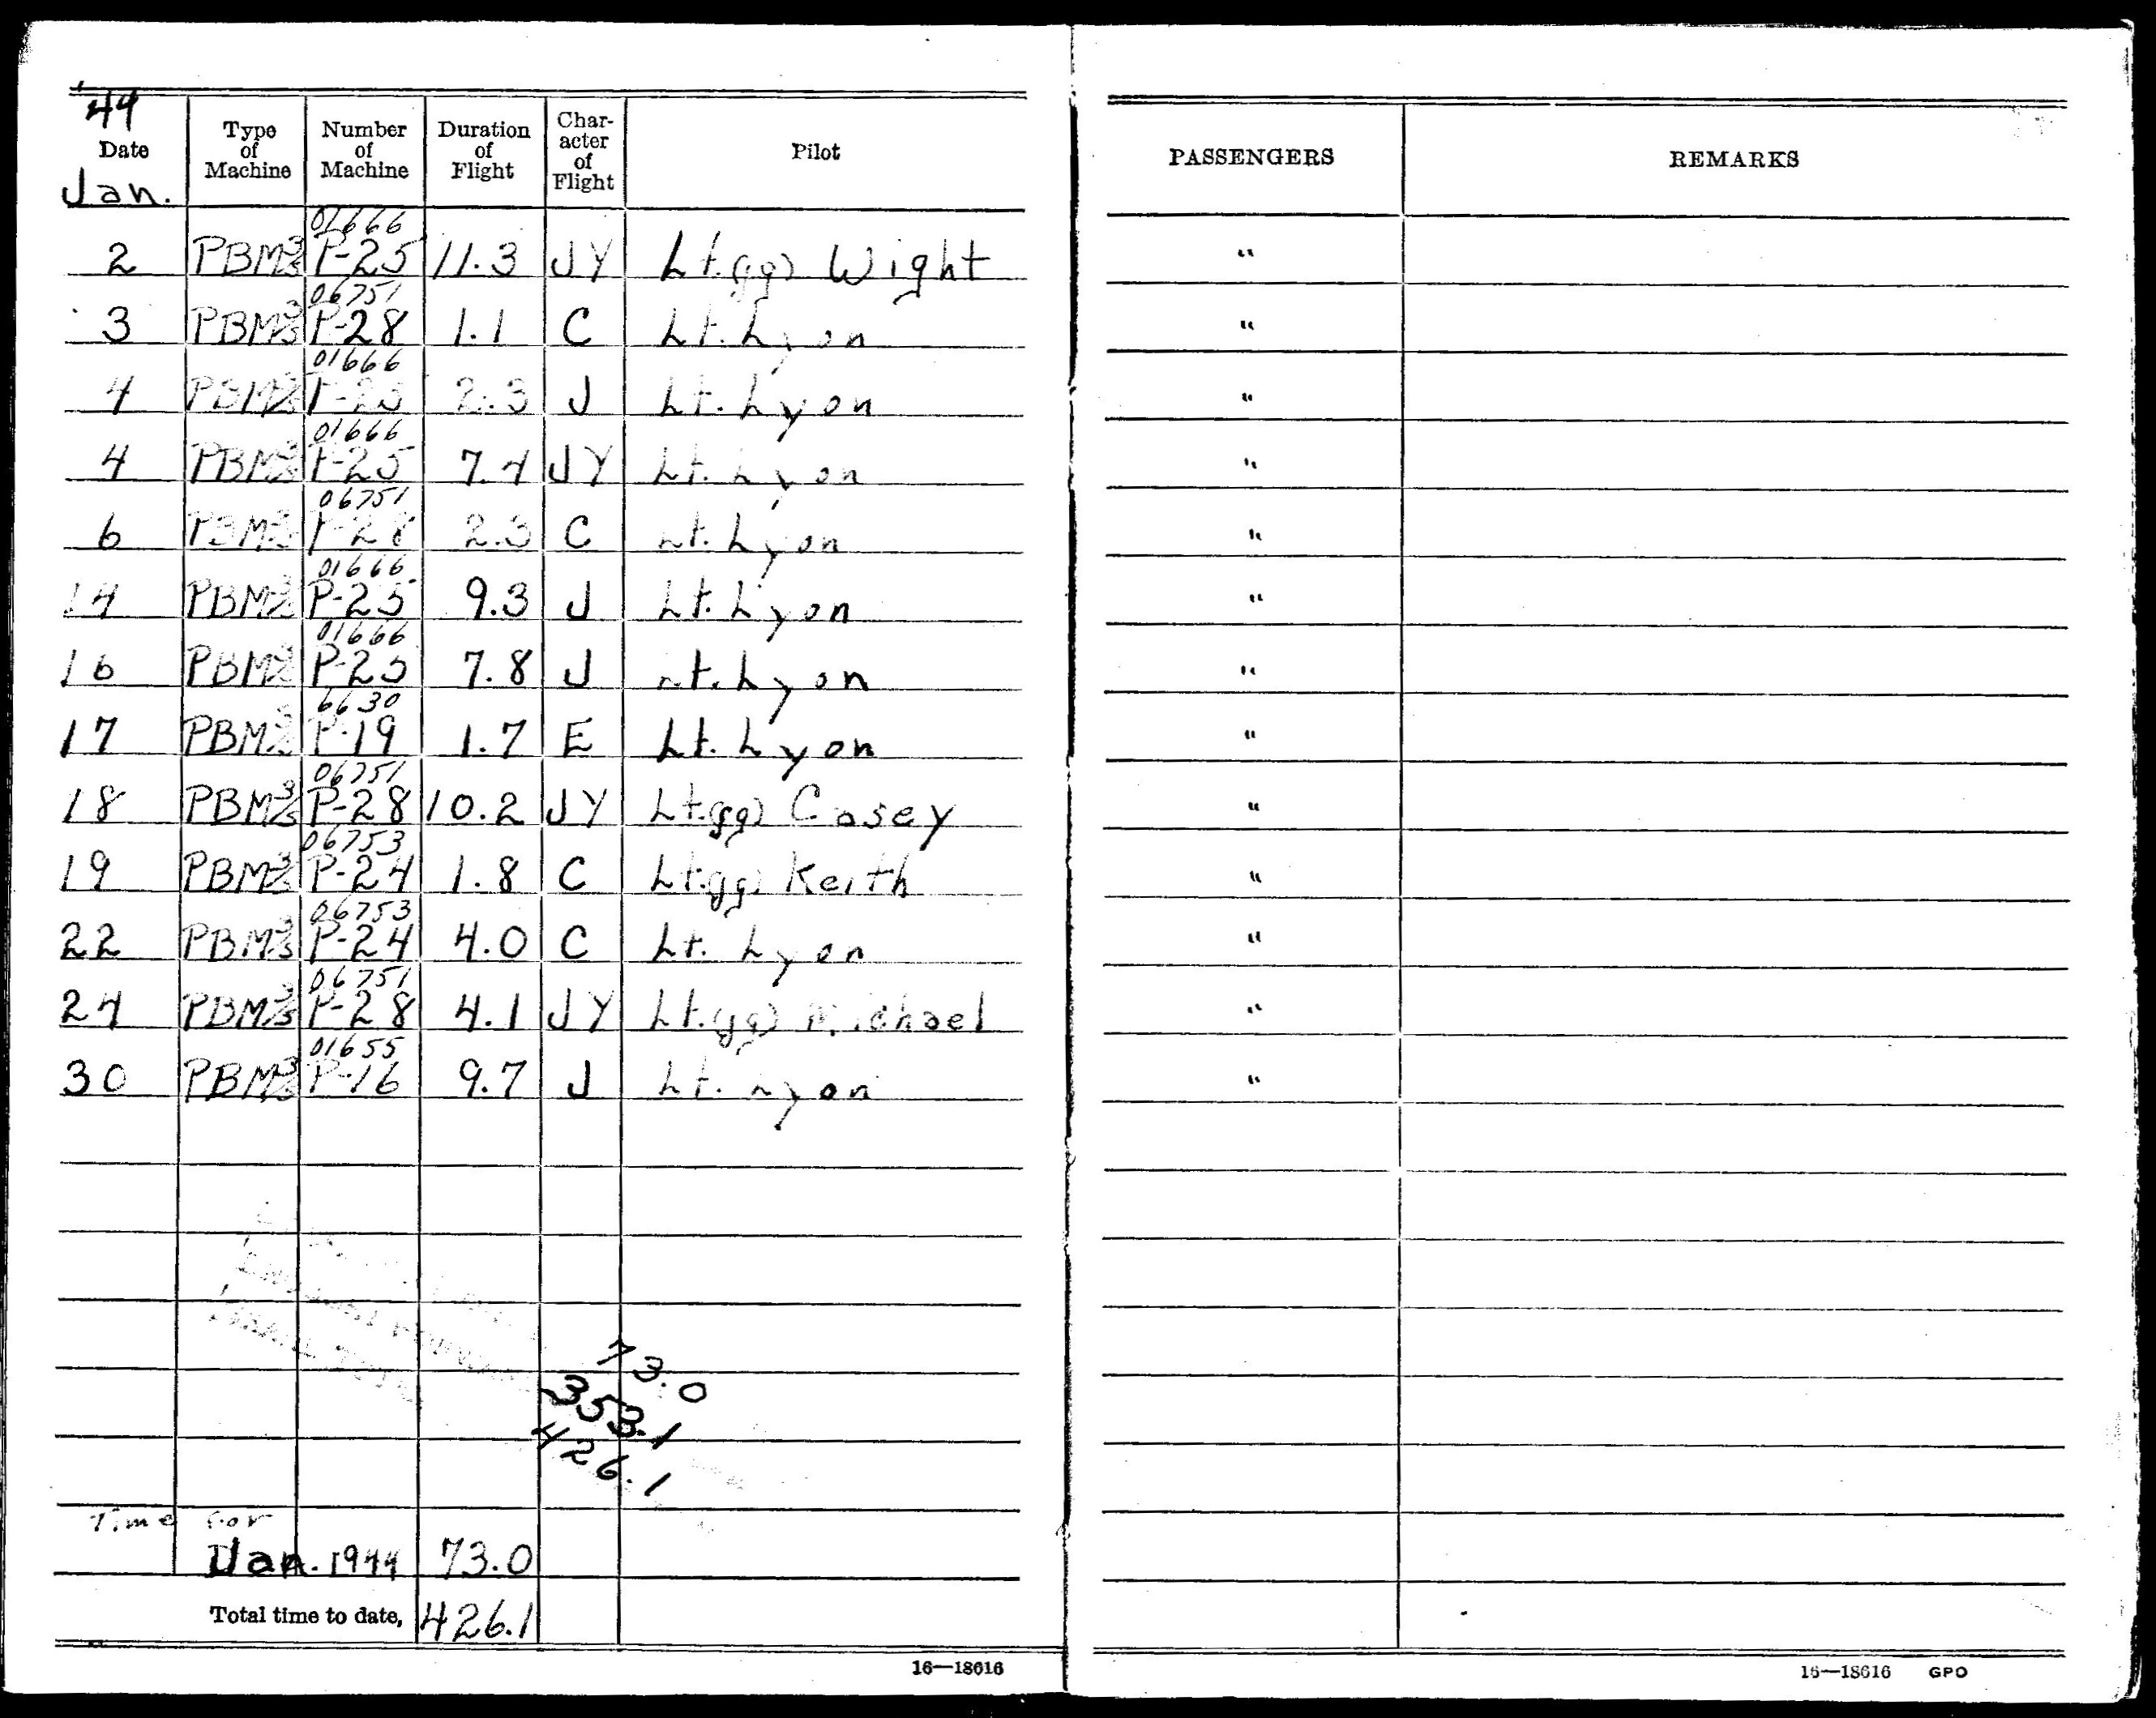 '44
Date Jan. Type of Machine Number of Machine Duration of Flight Char-acter of Flight Pilot PASSENGERS REMARKS
01666
2 PBM3S P-25 11.3 JY Lt.(jg) Wight "
06751
3 PBM3S P-28 1.1 C Lt. Lyon "
01666
4 PBM3S P-25 2.3 J Lt. Lyon "
01666
4 PBM3S P-25 7.4 JY Lt. Lyon "
06751
6 PBM3S P-28 2.3 C Lt. Lyon "
01666
14 PBM3S P-25 9.3 J Lt. Lyon "
01666
16 PBM3S P-25 7.8 J Lt. Lyon "
6630
17 PBM3S P-19 1.7 E Lt. Lyon "
06751
18 PBM3S P-28 10.2 JY Lt.(jg) Casey "
06753
19 PBM3S P-24 1.8 C Lt.(jg) Keith "
06753
22 PBM3S P-24 4.0 C Lt. Lyon "
06751
24 PBM3S P-28 4.1 JY Lt.(jg) Michael "
01655
30 PBM3S P-16 9.7 J Lt. Lyon "
73.0
353.1
426.1
Time for
Jan. 1944 73.0
Total time to date, 426.1
16—18616
16—18616 GPO